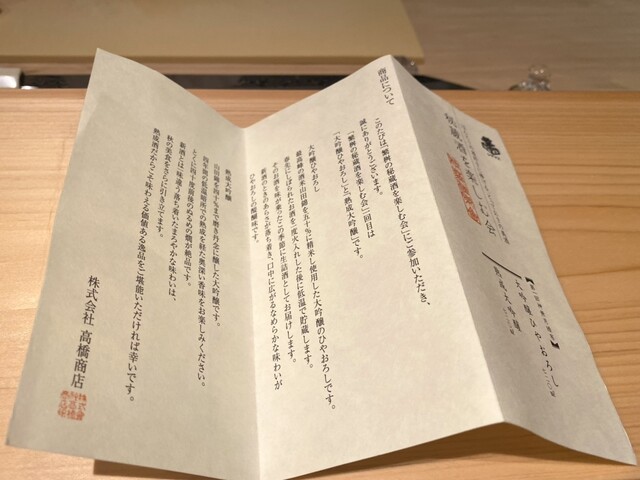 秘蔵酒を楽しむ会
大吟醸ひやおろし
熟成大吟醸
商品について
このたびは、「繁桝の秘蔵酒を楽しむ会」にご参加いただき、
誠にありがとうございます。
「繁桝の秘蔵酒を楽しむ会」一回目は
「大吟醸ひやおろし」と「熟成大吟醸」です。
大吟醸ひやおろし
最高峰の酒米山田錦を五十%に精米し使用した大吟醸のひやおろしです。
春先にしぼられたお酒を一度火入れした後に低温で貯蔵します。
そのお酒を味が乗ったこの季節に生詰酒としてお届けします。
新酒のときのあらさが落ち着き、口中に広がるなめらかな味わいが
ひやおろしの醍醐味です。
熟成大吟醸
山田錦を四十%まで磨き丹念に醸した大吟醸です。
四年間の低温場所での熟成を経た奥深い香味をお楽しみください。
とくに四十度前後のぬるめの燗が絶品です。
新酒とは一味違う落ち着いたまろやかな味わいは、
秋の美食をさらに引き立てます。
熟成酒だからこそ味わえる価値ある逸品をご堪能いただければ幸いです。
株式会社 高橋商店